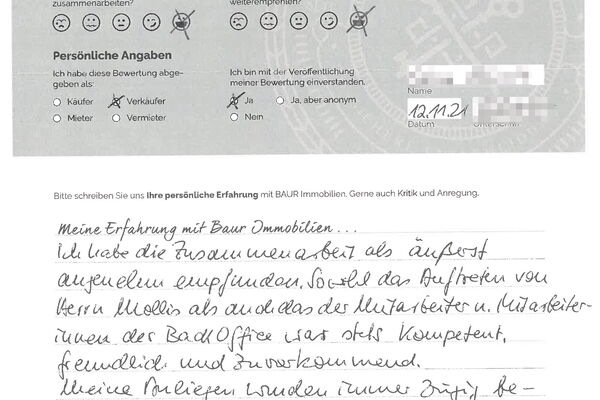 zusammenarbeiten?
weiterempfehlen?
Persönliche Angaben
Ich habe diese Bewertung abge-
geben als:
Käufer Verkäufer
Mieter Vermieter
Ich bin mit der Veröffentlichung
meiner Bewertung einverstanden.
Ja Ja, aber anonym
Nein
Name
12.11.21
Datum Unterschrift
Bitte schreiben Sie uns Ihre persönliche Erfahrung mit BAUR Immobilien. Gerne auch Kritik und Anregung.
Meine Erfahrung mit Baur Immobilien...
Ich habe die Zusammenarbeit als äußerst
angenehm empfunden. Sowohl das Auftreten von
Herrn Mollis als auch das der Mitarbeiter u. Mitarbeiter-
innen der BackOffice war stets kompetent,
freundlich und zuvorkommend.
Meine Anliegen wurden immer zügig be-